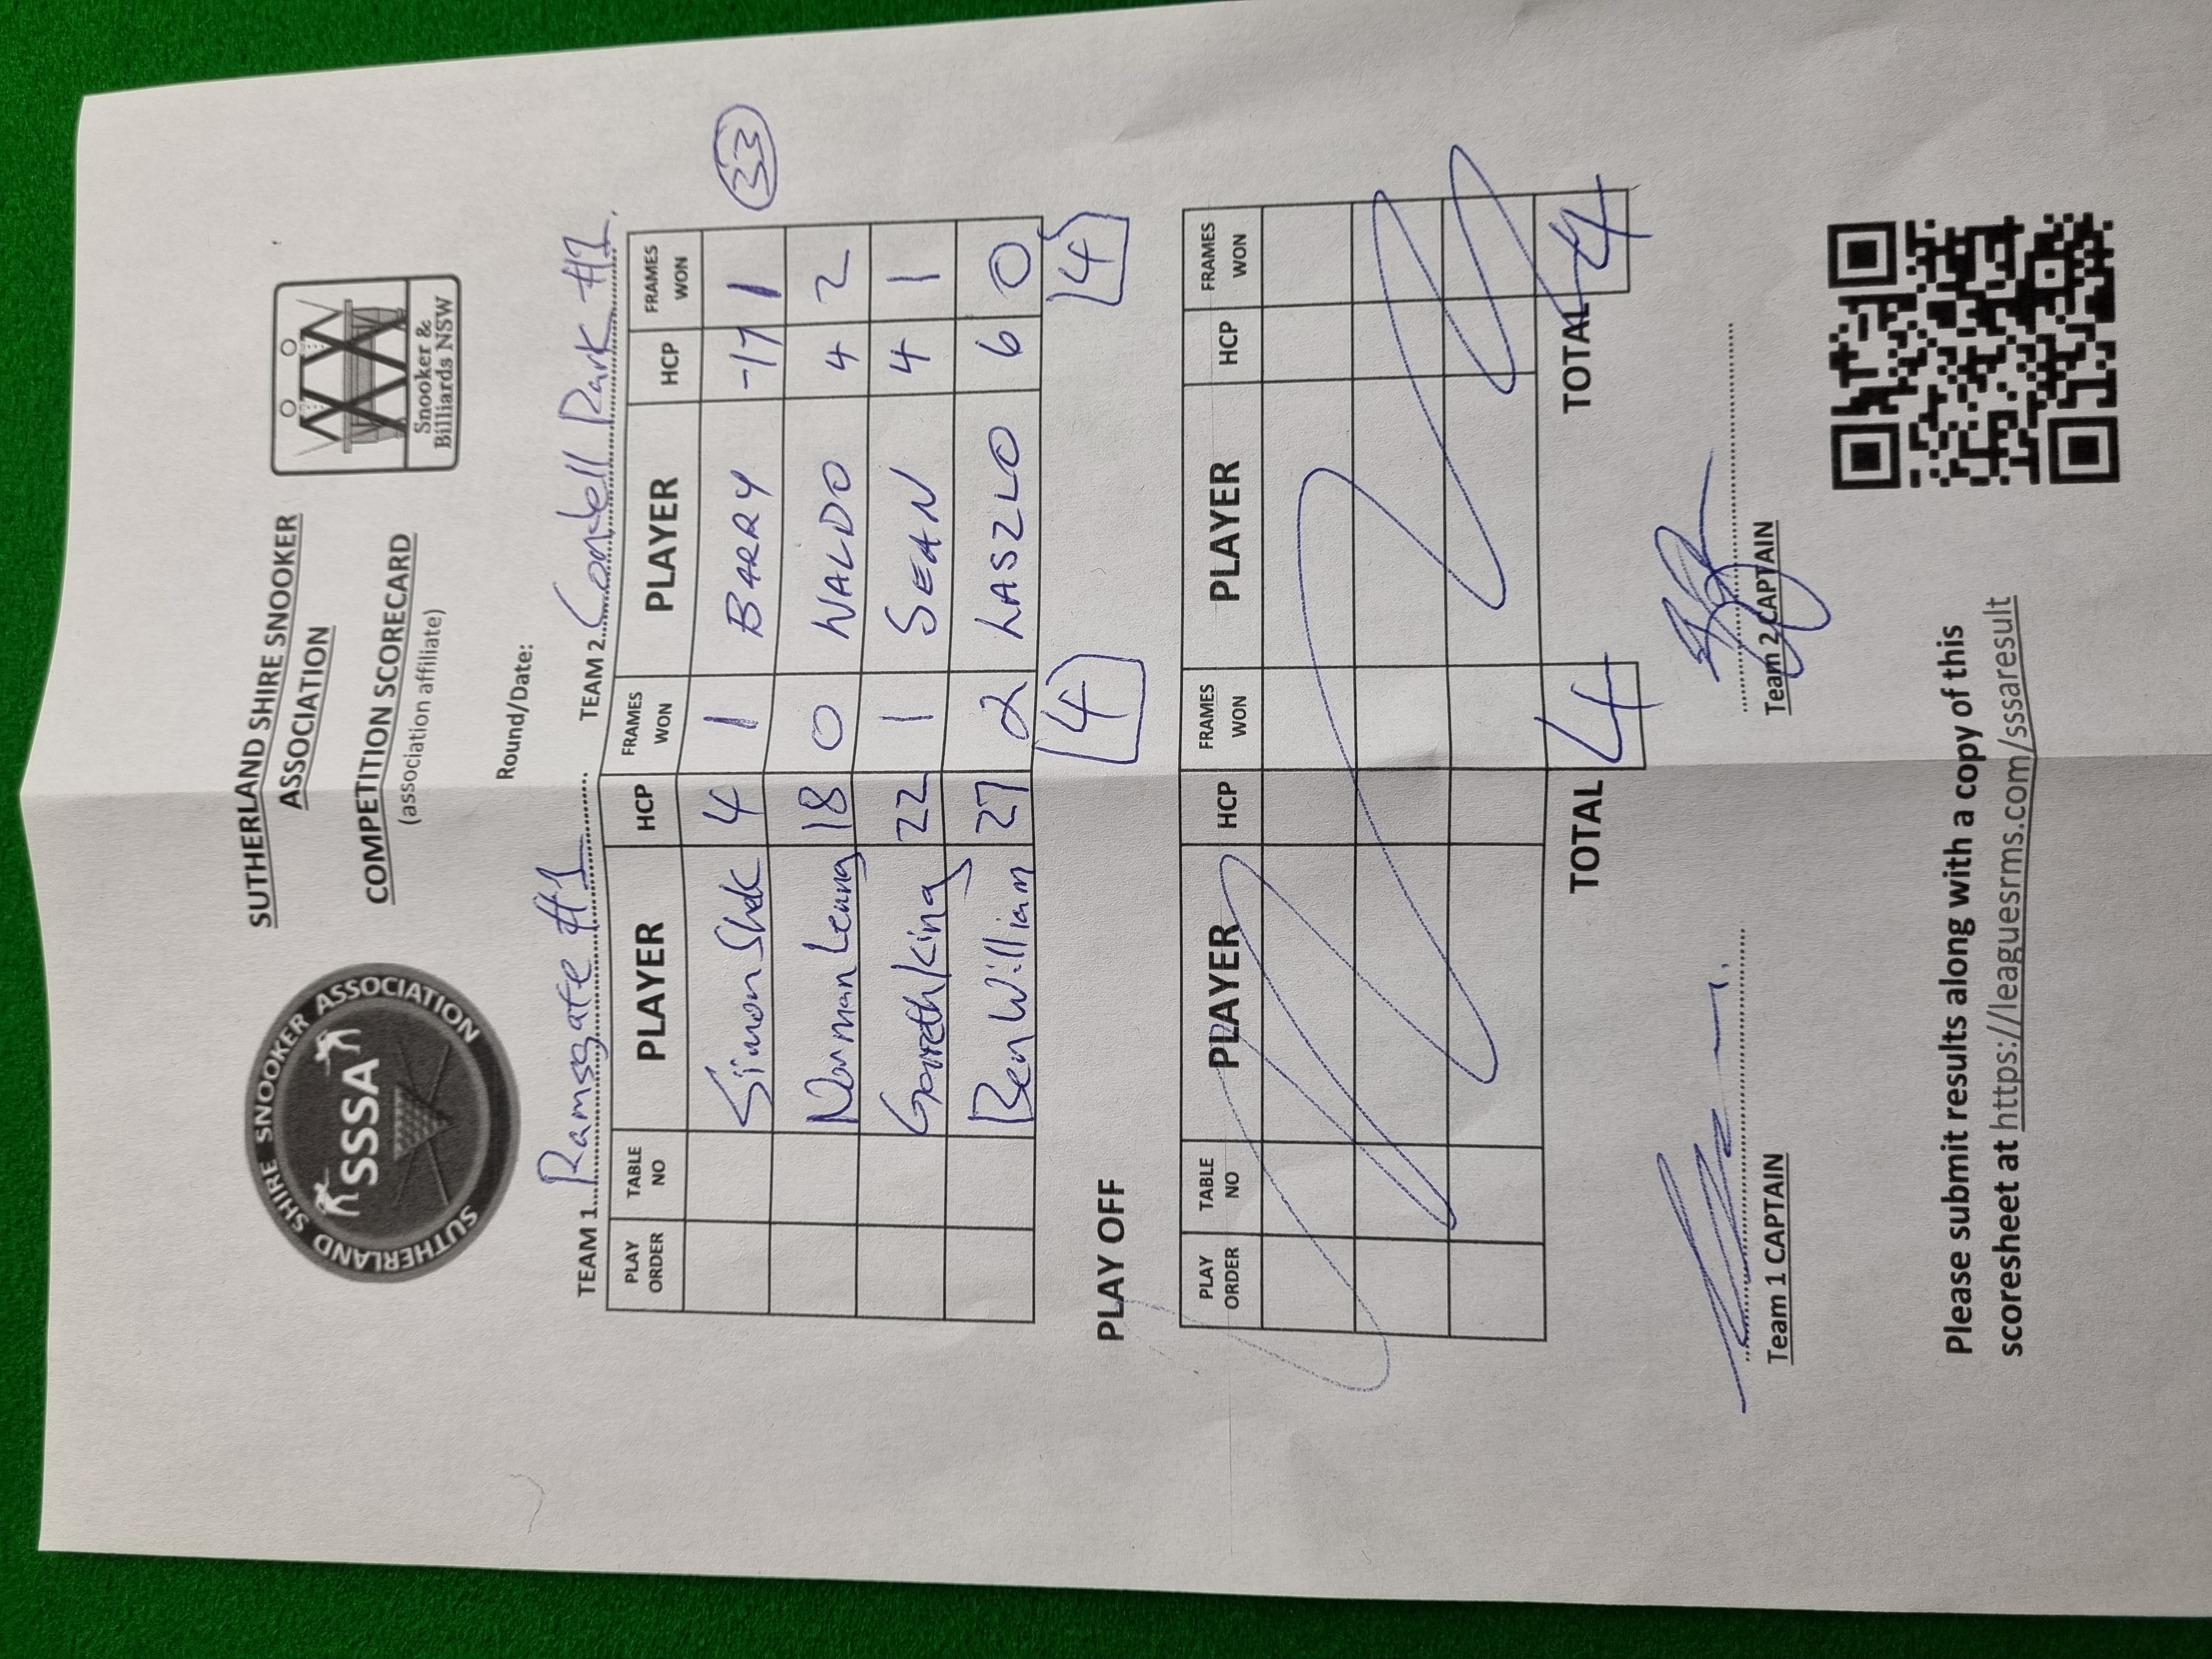 SUTHERLAND SHIRE SNOOKER ASSOCIATION
SSSA
SUTHERLAND SHIRE SNOOKER
ASSOCIATION
COMPETITION SCORECARD
(association affiliate)
Snooker &
Billiards NSW
Round/Date:
TEAM 1 Ramsgate #1 TEAM 2 Condell Park #1
PLAY ORDER TABLE NO PLAYER HCP FRAMES WON PLAYER HCP FRAMES WON
Simon Shek 4 1 BARRY -17 1 33
Norman Leung 18 0 WALDO 4 2
Gareth King 22 1 SEAN 4 1
Ben William 27 2 LASZLO 6 0
4 4
PLAY OFF
PLAY ORDER TABLE NO PLAYER HCP FRAMES WON PLAYER HCP FRAMES WON
TOTAL 4 TOTAL 4
Team 1 CAPTAIN Team 2 CAPTAIN
Please submit results along with a copy of this
scoresheet at https://leaguesrms.com/sssaresult